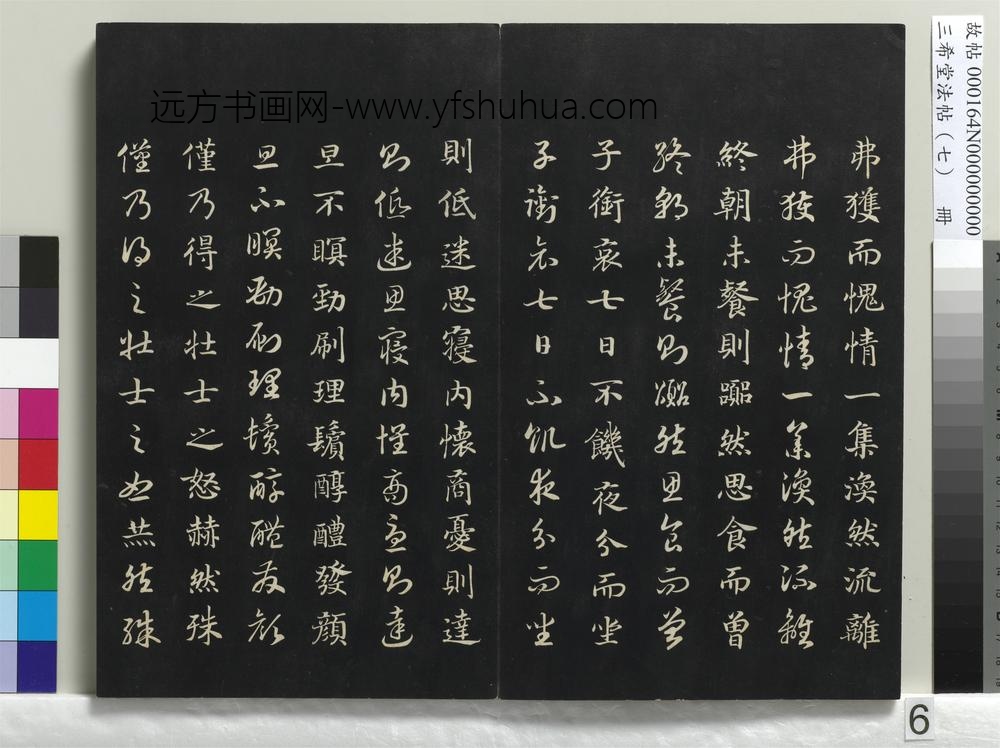 弗獲而愧情一集渙然流離
弗獲而愧情一集渙然流離
終朝未餐則囂然思食而曾
終朝未餐則囂然思食而曾
子銜哀七日不饑夜分而坐
子銜哀七日不飢夜分而坐
則低迷思寢內懷商憂則達
則低迷思寢內懷商憂則達
旦不瞑勁刷理鬢醇醴發顏
旦不瞑勁刷理鬢醇醴發顏
僅乃得之壯士之怒赫然殊
僅乃得之壯士之怒赫然殊
远方书画网-www.yfshuhua.com
故帖 000164N000000000
三希堂法帖(七) 冊
6